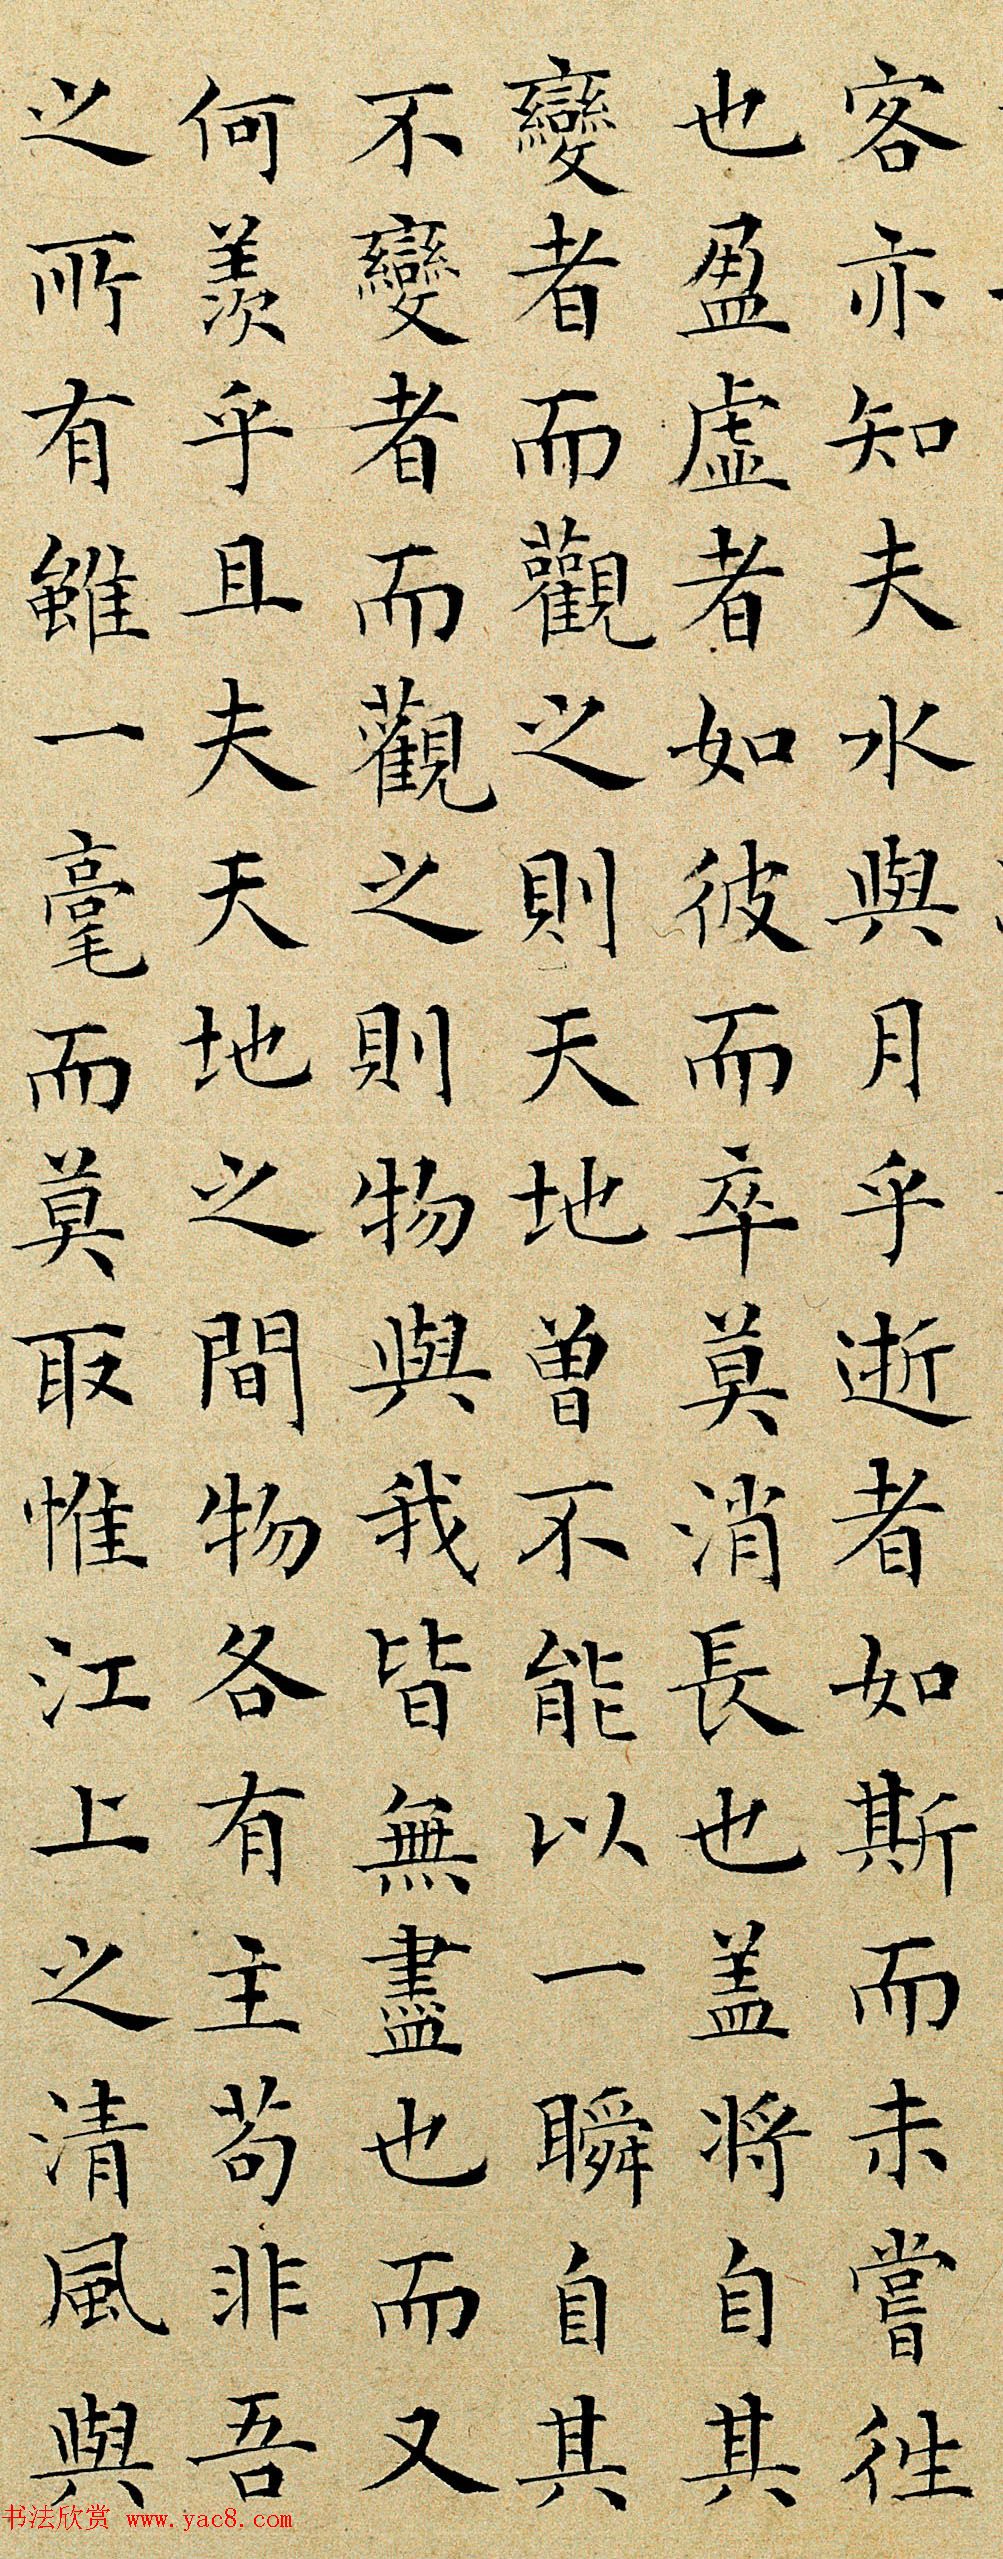 客亦知夫水與月乎逝者如斯而未嘗往
也盈虛者如彼而卒莫消長也盖将自其
變者而觀之則天地曾不能以一瞬自其
不變者而觀之則物與我皆無盡也而又
何羨乎且夫天地之間物各有主苟非吾
之所有雖一毫而莫取惟江上之清風與
书法欣赏 www.yac8.com